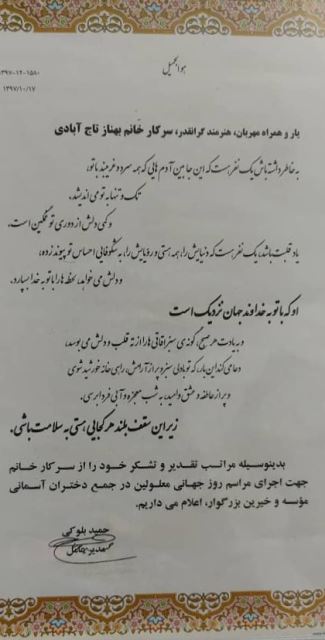 هوالجمیل
۱۳۹۷-۱۲-۱۵۸۰
۱۳۹۷/۱۰/۱۷
یار و همراه مهربان، هنرمند گرانقدر، سرکار خانم بهناز تاج آبادی
به خاطر داشته باش یک نفر هست که این جا بین آدم هایی که همه سرد و غریبند با تو،
تک و تنها به تو می اندیشد،
و کمی دلش از دوری تو غمگین است.
یاد قلبت باشد، یک نفر هست که دنیایش را، همه هستی و رویایش را، به شکوفایی احساس تو پیوند زده،
و دلش می خواهد، لحظه ها را با تو به خدا بسپارد.
او که با تو به خداوند جهان نزدیک است
و به یادت هر صبح، گونه ی سبز اقاقی ها را از ته قلب و دلش می بوسد،
دعا می کند این بار، که تو با دلی سبز و پر از آرامش، راهی خانه خورشید شوی
و پر از عاطفه و عشق و امید، به شب معجزه و آبی فردا برسی.
زیر این سقف بلند هر کجایی هستی به سلامت باشی.
بدینوسیله مراتب تقدیر و تشکر خود را از سرکار خانم
جهت اجرای مراسم روز جهانی معلولین در جمع دختران آسمانی
مؤسسه و خیرین بزرگوار، اعلام می داریم.
حمید بلوکی
مدیرعامل